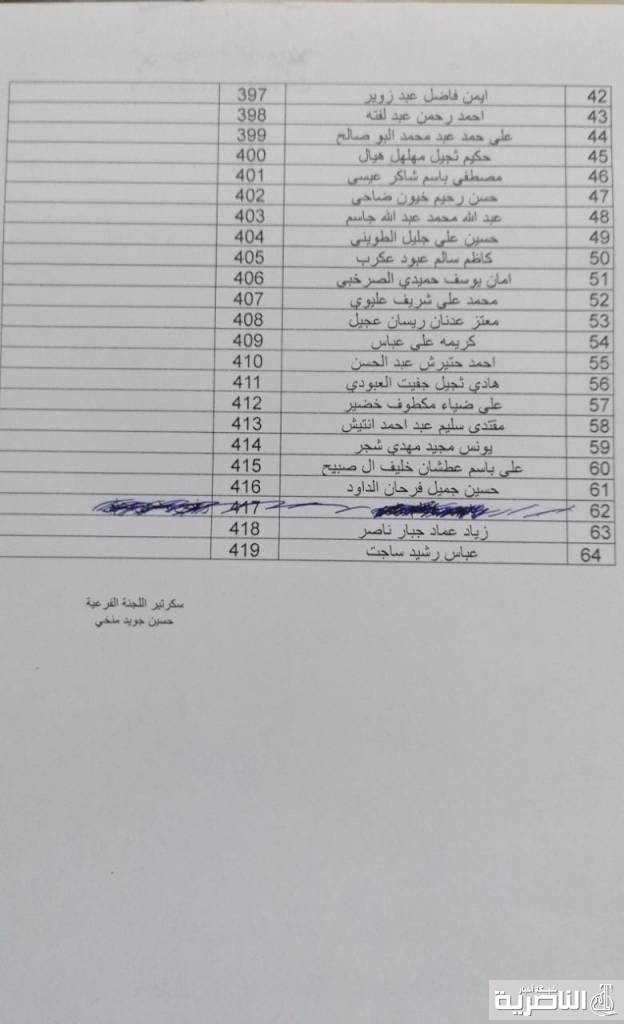 42 ايمن فاضل عبد زوير 397
43 احمد رحمن عبد لفته 398
44 علي حمد عبد محمد البو صالح 399
45 حكيم ثجيل مهلهل هيال 400
46 مصطفى باسم شاكر عيسى 401
47 حسن رحيم خيون ضاحي 402
48 عبد الله محمد عبد الله جاسم 403
49 حسين علي جليل الطويني 404
50 كاظم سالم عبود عكرب 405
51 امان يوسف حميدي الصرخبي 406
52 محمد علي شريف عليوي 407
53 معتز عدنان ريسان عجيل 408
54 كريمه علي عباس 409
55 احمد حتيرش عبد الحسن 410
56 هادي ثجيل جفيت العبودي 411
57 علي ضياء مكطوف خضير 412
58 مقتدى سليم عبد احمد انتيش 413
59 يونس مجيد مهدي شجر 414
60 علي باسم عطشان خليف ال صبيح 415
61 حسين جميل فرحان الداود 416
62 417
63 زياد عماد جبار ناصر 418
64 عباس رشيد ساجت 419
سكرتير اللجنة الفرعية
حسين جويد منخي
شبكة أخبار
الناصرية